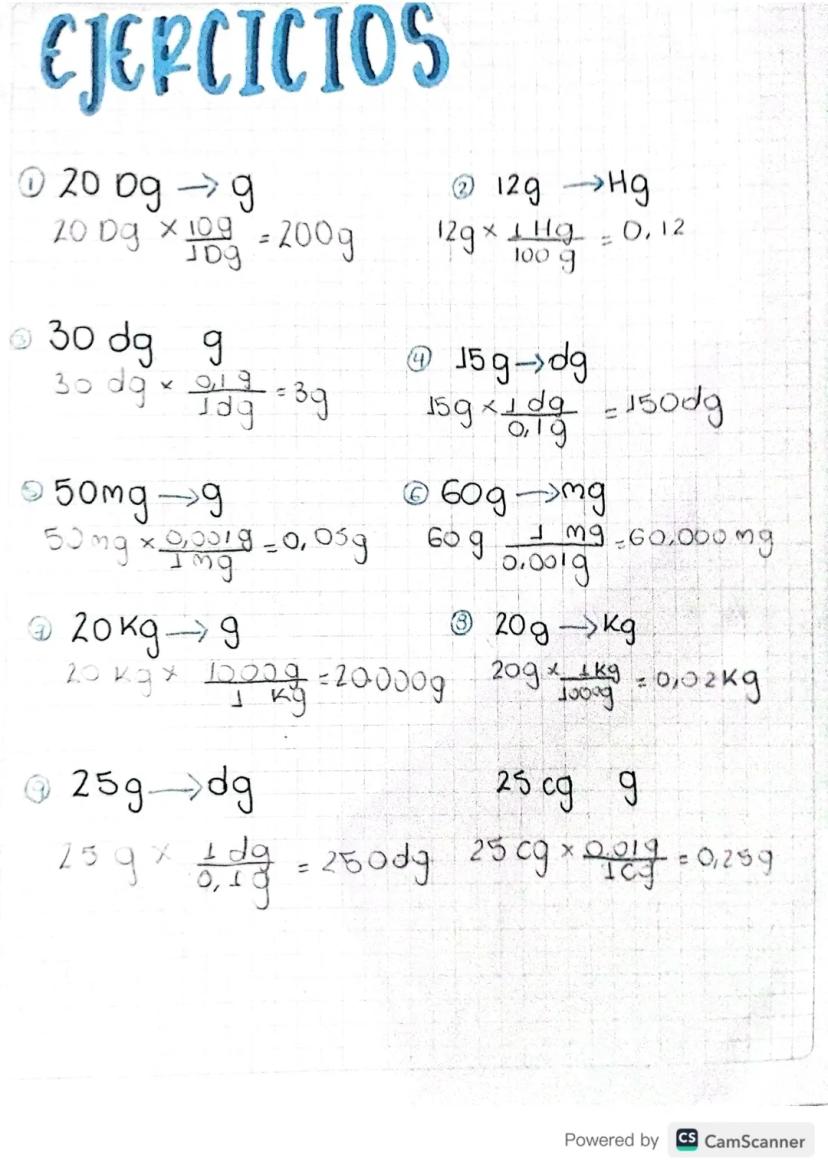 EJERCICIOS
① 20 Dg → g
20 Dg × 10g / 1Dg = 200g
② 12g → Hg
12g × 1 Hg / 100 g = 0,12
③ 30 dg g
30 dg × 0,1g / 1dg = 3g
④ 15g → dg
15g × 1 dg / 0,1g = 150dg
⑤ 50mg → g
50mg × 0,001g / 1mg = 0,05g
⑥ 60g → mg
60g 1 mg / 0.001g = 60.000mg
⑦ 20Kg → g
20 Kg × 1000g / 1 Kg = 20.000g
⑧ 20g → Kg
20g × 1Kg / 1000g = 0,02Kg
⑨ 25g → dg
25g × 1 dg / 0,1g = 250dg
25 cg g
25 cg × 0,01g / 1cg = 0,25g
Powered by CS CamScanner